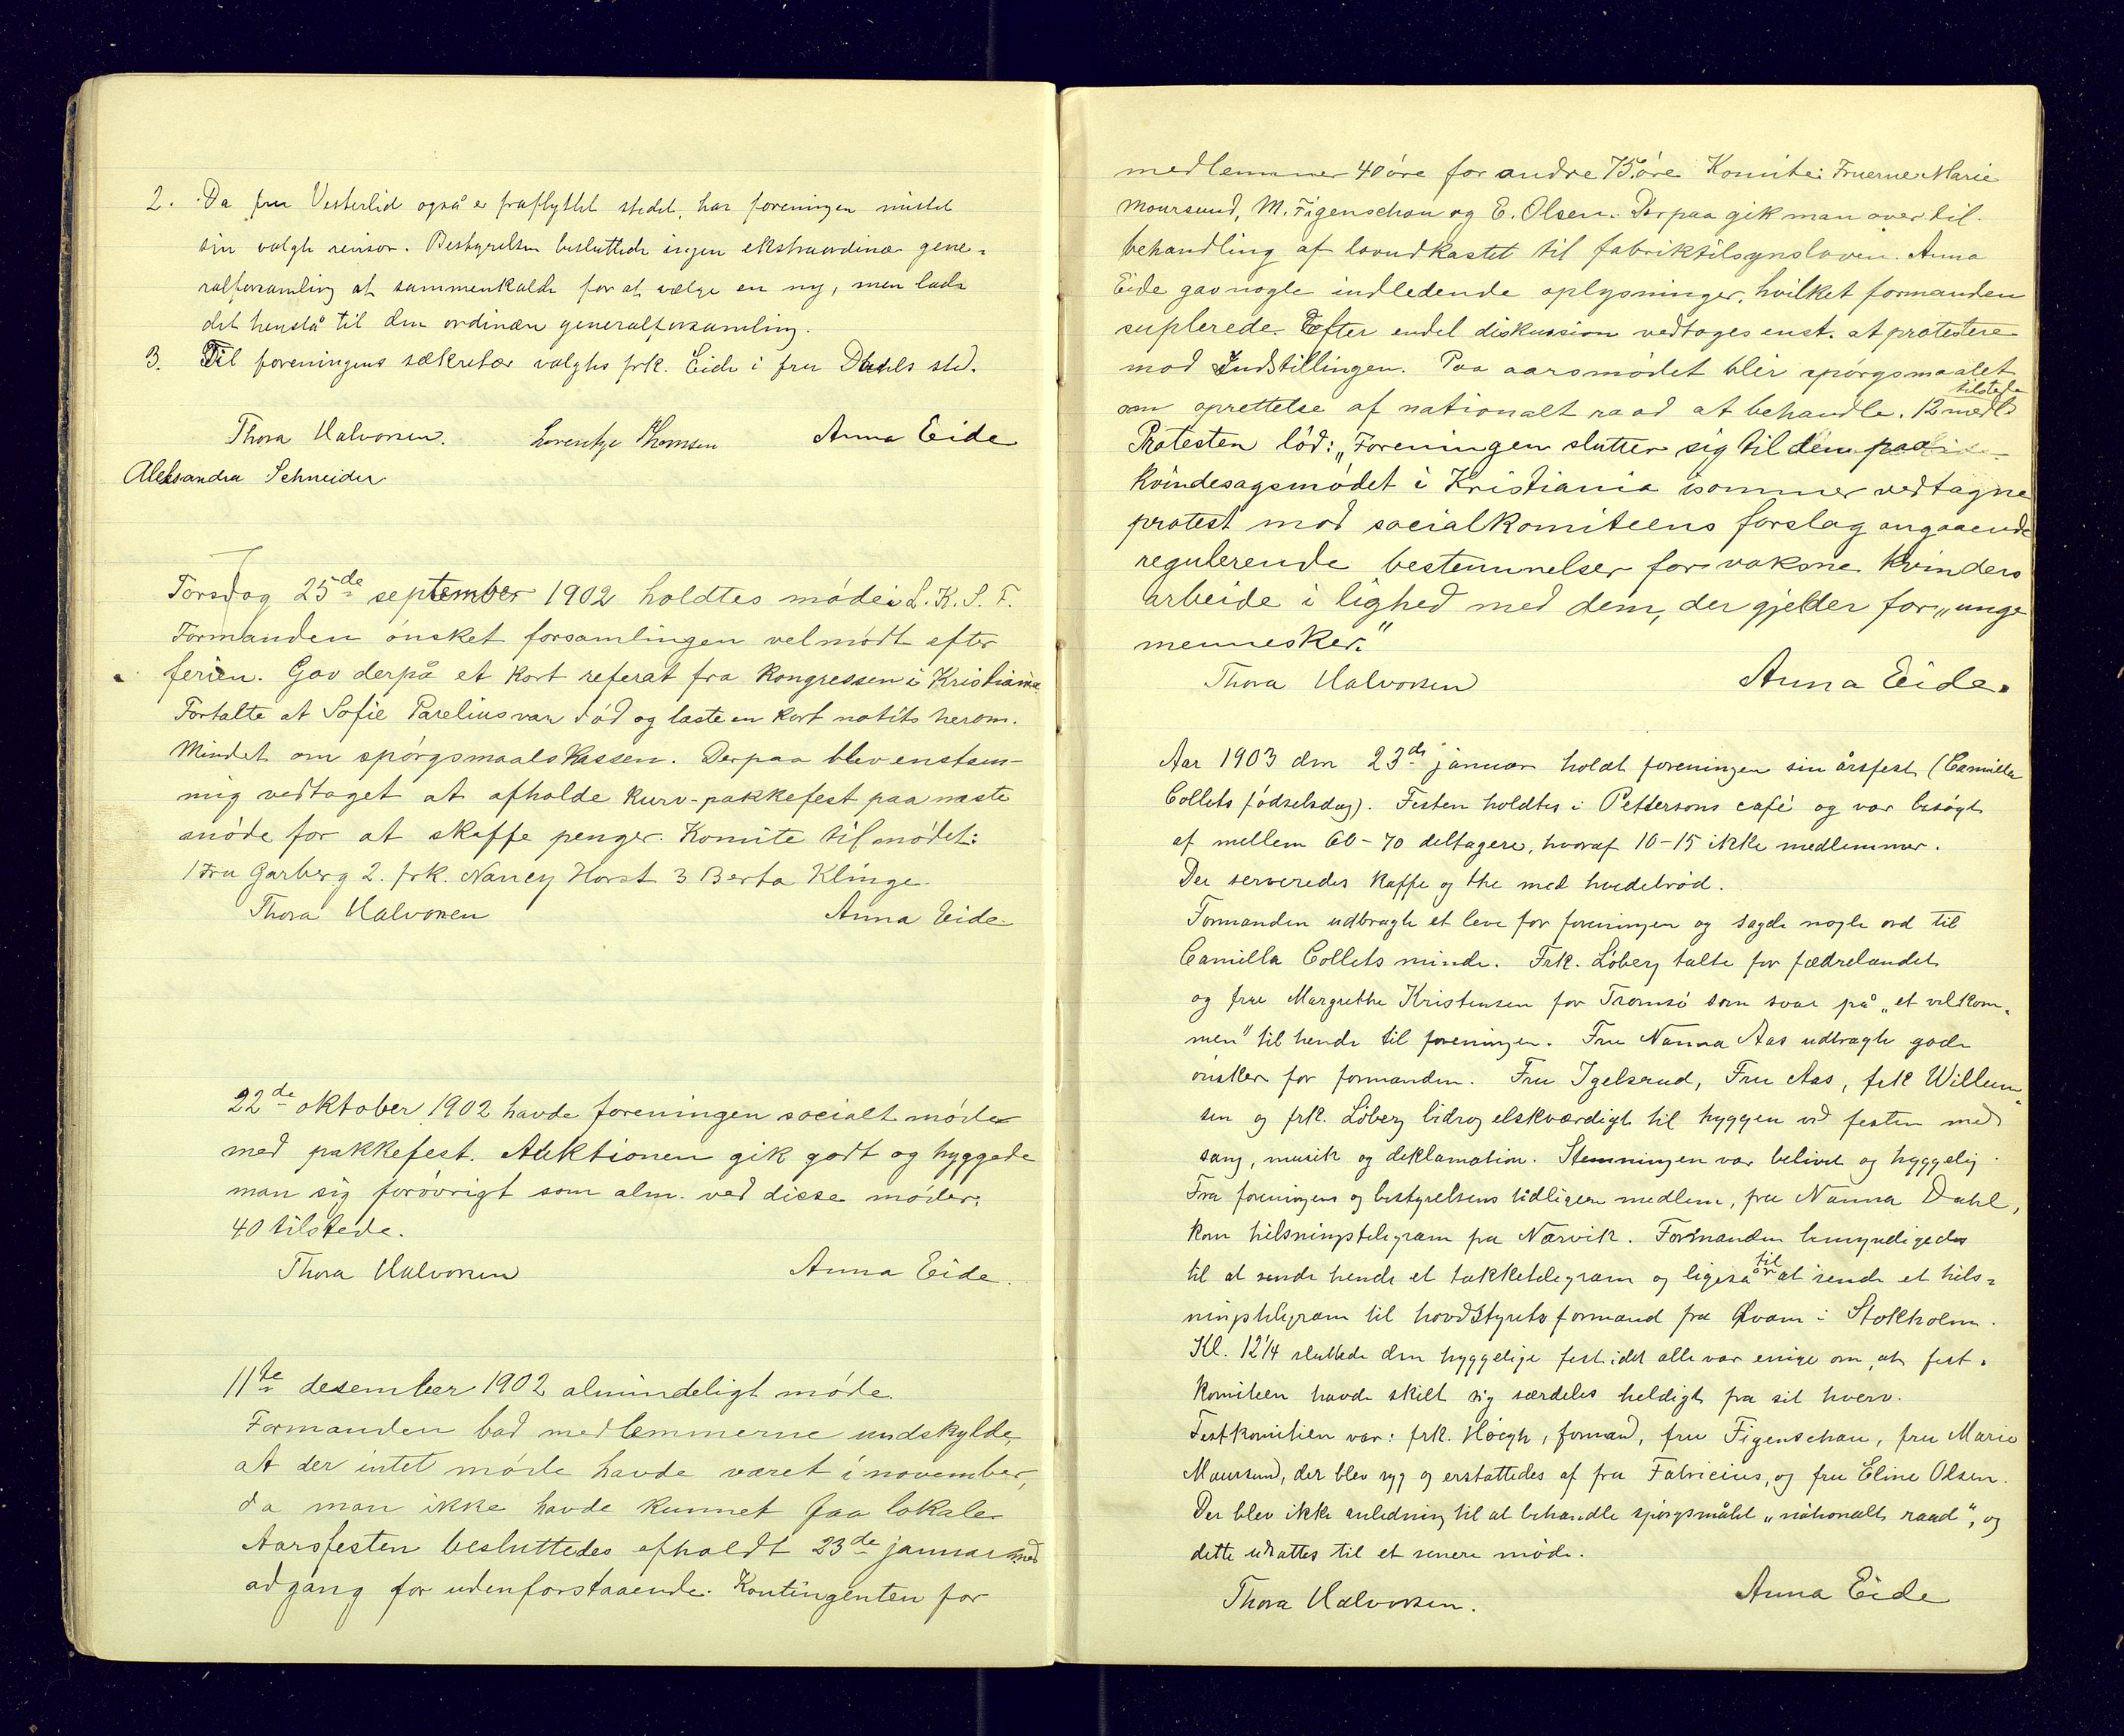 2. Da fru Vesterlid også er fraflyttet stedet, har foreningen mistet
sin valgte revisor. Bestyrelsen besluttede ingen ekstraordinær gene-
ralforsamling at sammenkalde for at vælge en ny, men lade
det henstå til den ordinære generalforsamling.
3. Til foreningens sækretær valgtes frk. Eide i fru Dahls sted.
Thora Halvorsen. Lorentze Thomsen Anna Eide
Aleksandra Schneider
Torsdag 25de september 1902 holdtes møde i L. K. S. F.
Formanden ønsket forsamlingen velmødt efter
ferien. Gav derpå et kort referat fra kongressen i Kristiania
Fortalte at Sofie Parelius var død og læste en kort notits herom.
Mindet om spørgsmaalskassen. Derpaa blev enstem-
mig vedtaget at afholde kurv-pakkefest paa næste
møde for at skaffe penger. Komite til mødet:
1 Fru Garberg 2. frk. Nancy Horst 3 Berta Klinge.
Thora Halvorsen Anna Eide.
22de oktober 1902 havde foreningen socialt møde
med pakkefest. Auktionen gik godt og hyggede
man sig forøvrigt som alm. ved disse møder.
40 tilstede.
Thora Halvorsen Anna Eide.
11te desember 1902 almindeligt møde.
Formanden bad medlemmerne undskylde,
at der intet møde havde været i november,
da man ikke havde kunnet faa lokale
Aarsfesten besluttedes afholdt 23de januar med
adgang for udenforstaaende. Kontingenten for
medlemmer 40 øre for andre 75 øre Komite: Fruerne Marie
Moursund, M. Figenschou og E. Olsen. Derpaa gik man over til
behandling af lovudkastet til fabriktilsynsloven. Anna
Eide gav nogle indledende oplysninger, hvilket formanden
suplerede. Efter endel diskussion vedtoges enst. at protestere
mod Indstillingen. Paa aarsmødet blir spørgsmaalet
om oprettelse af nationalt raad at behandle. 12 medl. tilstede
Protesten lød: „Foreningen slutter sig til den paa
kvindesagsmødet i Kristiania isommer vedtagne
protest mod socialkomiteens forslag angaaende
regulerende bestemmelser for voksne kvinders
arbeide i lighed med dem, der gjelder for „unge
mennesker."
Thora Halvorsen Anna Eide.
Aar 1903 den 23de januar holdt foreningen sin årsfest (Camilla
Collets fødselsdag). Festen holdtes i Pettersons café og var besøgt
af mellem 60-70 deltagere, hvoraf 10-15 ikke medlemmer.
Der serveredes kaffe og the med hvedebrød.
Formanden udbragte et leve for foreningen og sagde nogle ord til
Camilla Collets minde. Frk. Löberg talte for fædrelandet
og frue Margrethe Kristensen for Tromsø som svar på „et velkom-
men" til hende til foreningen. Fru Nanna Aas udbragte gode
ønsker for formanden. Fru Igelsrud, Fru Aas, frk Willum-
sen og frk. Löberg bidrog elskværdigt til hyggen ved festen med
sang, musik og deklamation. Stemningen var belivet og hyggelig.
Fra foreningens og bestyrelsens tidligere medlem, fru Nanna Dahl,
kom hilsningstelegram fra Narvik. Formanden bemyndigedes
til at sende hende et takketelegram og ligeså til at sende et hils-
ningstelegram til hovdstyrets formand fru Qvam i Stokholm.
Kl. 12¼ sluttede den hyggelige fest idet alle var enige om, at fest-
komiteen havde skilt sig særdeles heldigt fra sit hverv.
Festkomiteen var: frk. Høegh, formand, fru Figenschau, fru Marie
Moursund, der blev syg og erstattedes af fru Fabricius, og fru Eline Olsen.
Der blev ikke anledning til at behandle spørgsmålet „nationalt raad", og
dette udsattes til et senere møde.
Thora Halvorsen. Anna Eide